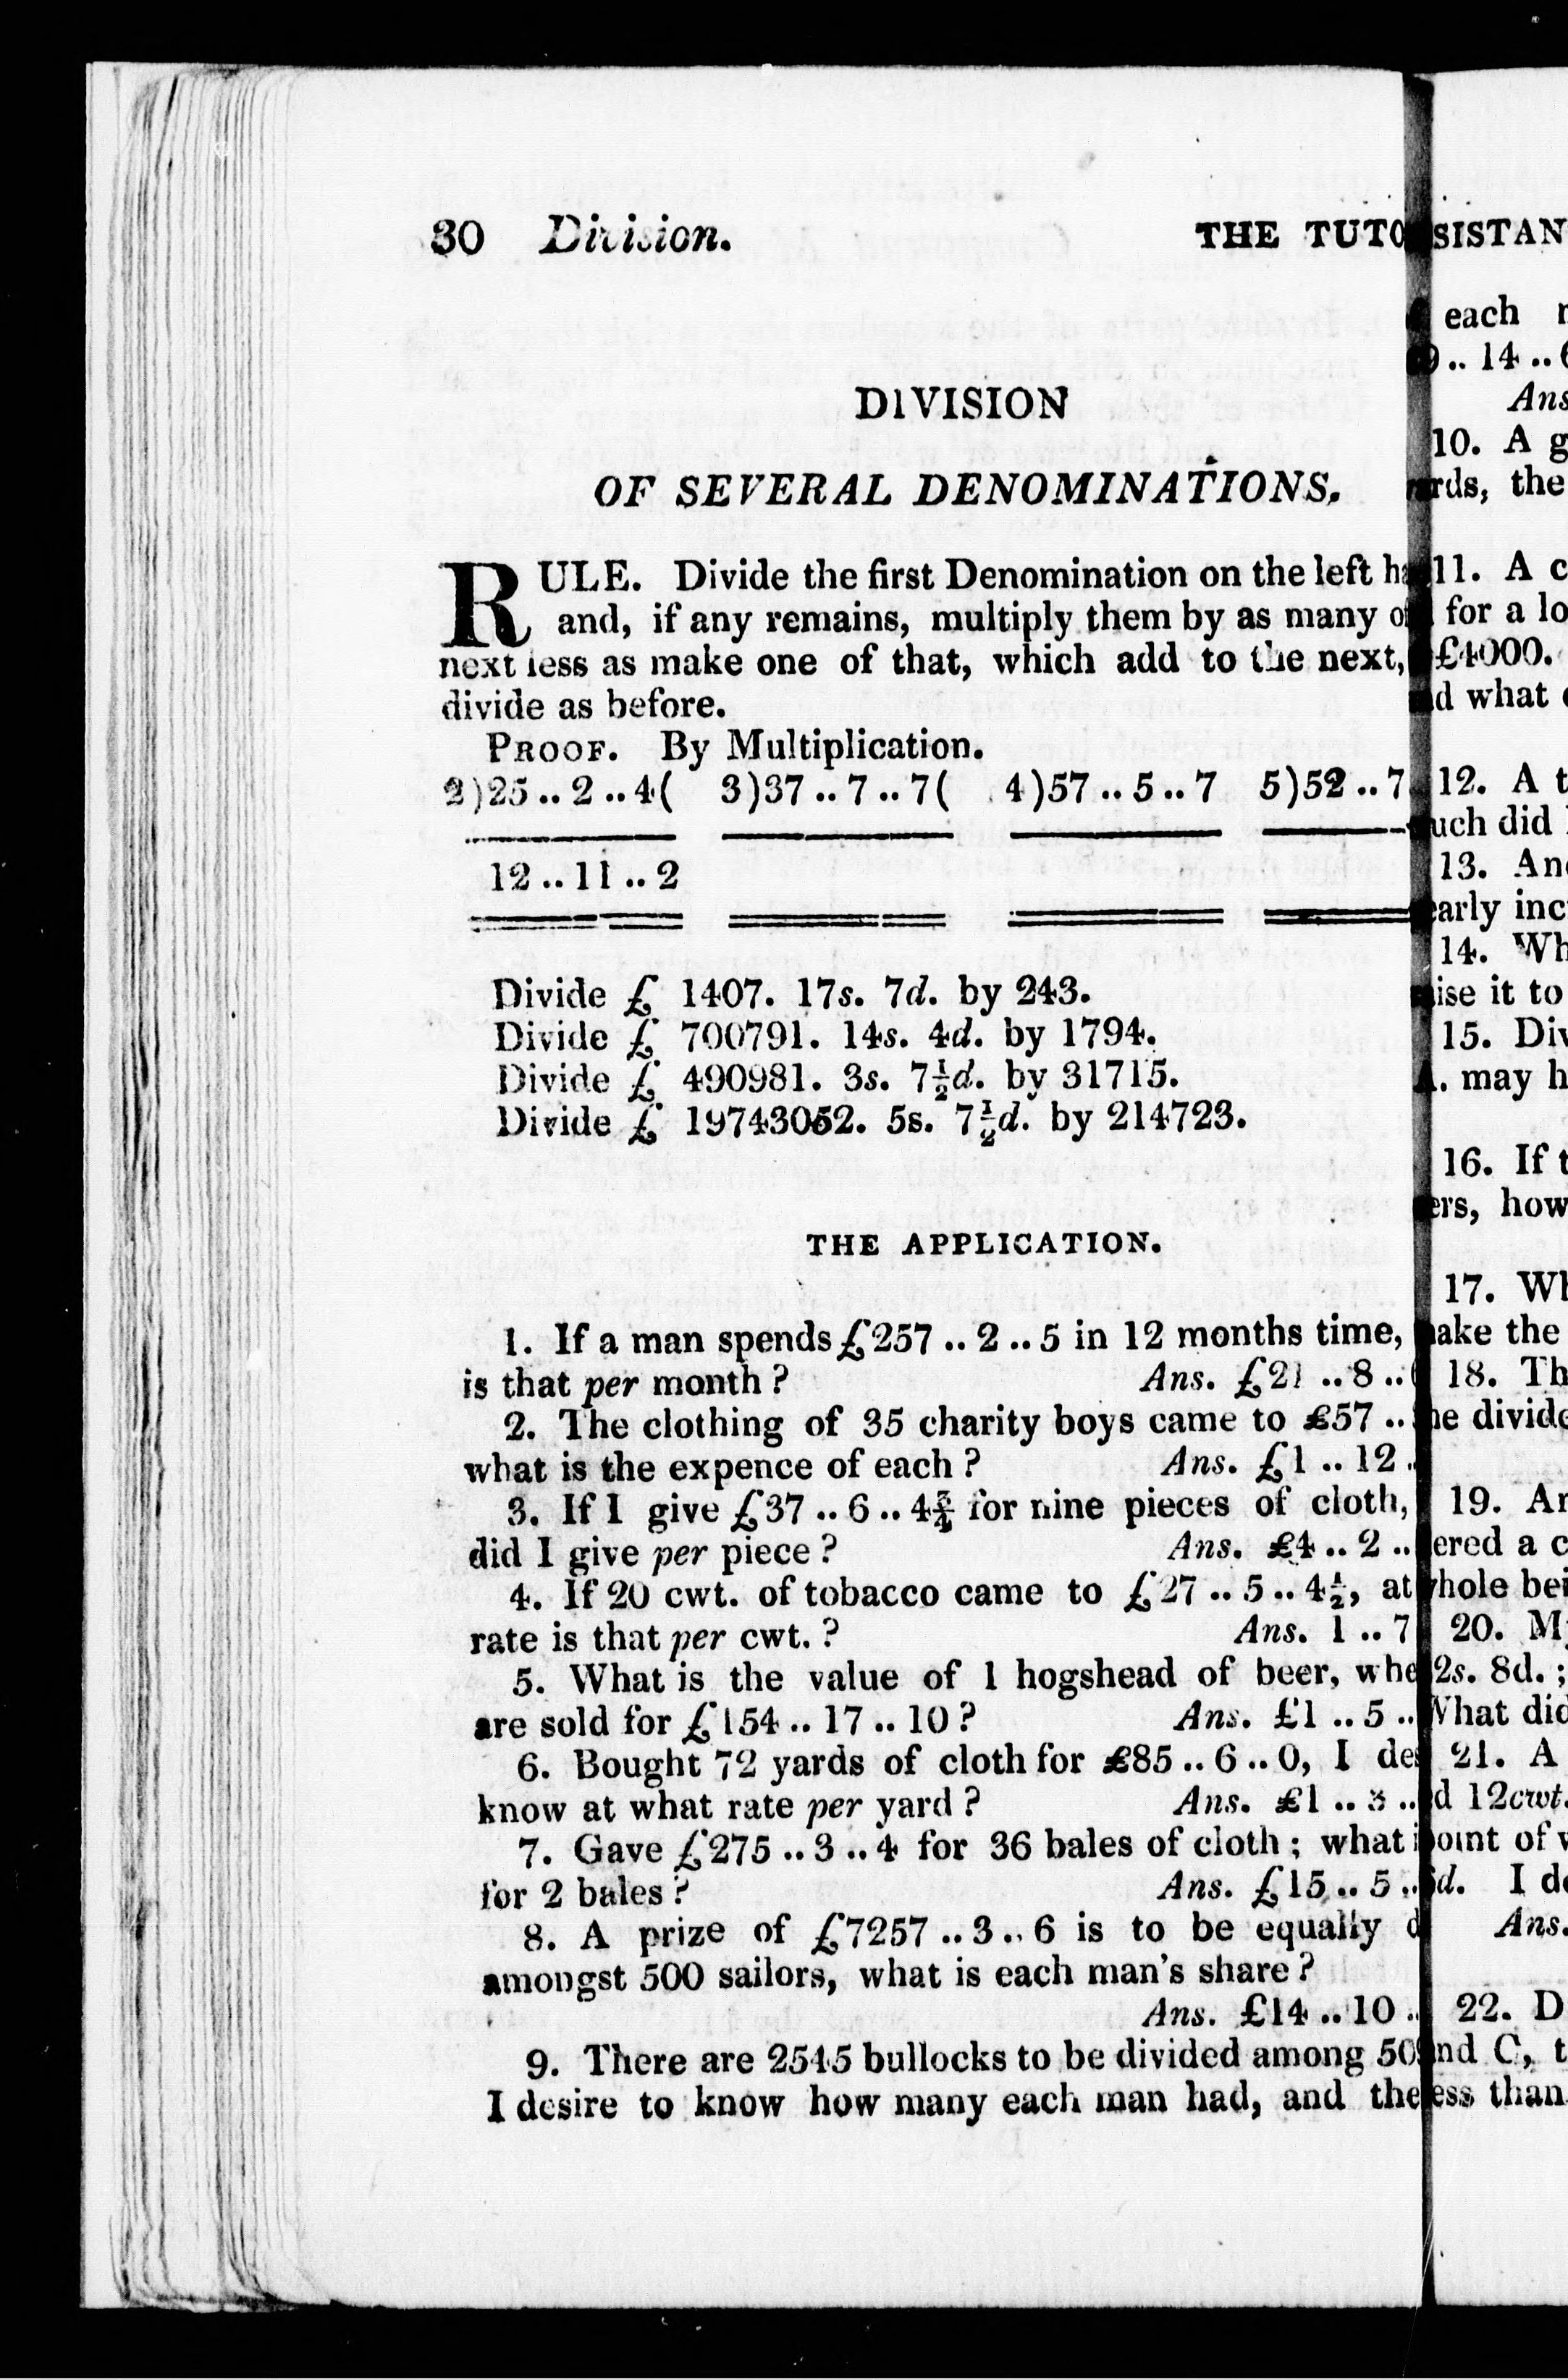 30 Division.
THE TUTO
DIVISION
OF SEVERAL DENOMINATIONS.
RULE. Divide the first Denomination on the left
and, if any remains, multiply them by as many
next less as make one of that, which add to the next,
divide as before.
PROOF. By Multiplication.
2)25..2..4( 3)37..7..7( 4)57..5..7 5)52..7
12..11..2
Divide £ 1407. 17s. 7d. by 243.
Divide £ 700791. 14s. 4d. by 1794.
Divide £ 490981. 3s. 7½d. by 31715.
Divide £ 19743052. 5s. 7½d. by 214723.
THE APPLICATION.
1. If a man spends £257..2..5 in 12 months time,
is that per month? Ans. £21..8..
2. The clothing of 35 charity boys came to £57..
what is the expence of each? Ans. £1..12.
3. If I give £37..6..4¾ for nine pieces of cloth,
did I give per piece? Ans. £4..2..
4. If 20 cwt. of tobacco came to £27..5..4½, at
rate is that per cwt.? Ans. 1..7
5. What is the value of 1 hogshead of beer, whe
are sold for £154..17..10? Ans. £1..5..
6. Bought 72 yards of cloth for £85..6..0, I de
know at what rate per yard? Ans. £1..3..
7. Gave £275..3..4 for 36 bales of cloth; what i
for 2 bales? Ans. £15..5..
8. A prize of £7257..3..6 is to be equally d
amongst 500 sailors, what is each man's share?
Ans. £14..10.
9. There are 2545 bullocks to be divided among 50
I desire to know how many each man had, and the
SISTAN
each
..14..
Ans
10. A g
rds, the
11. A c
for a lo
£4000.
d what
12. A t
uch did
13. An
early inc
14. Wh
ise it to
15. Div
. may h
16. If t
ers, how
17. Wh
ake the
18. Th
he divide
19. An
ered a c
hole bei
20. My
2s. 8d.;
What did
21. A
d 12cwt.
oint of
d. I de
Ans.
22. D
nd C, t
ess than